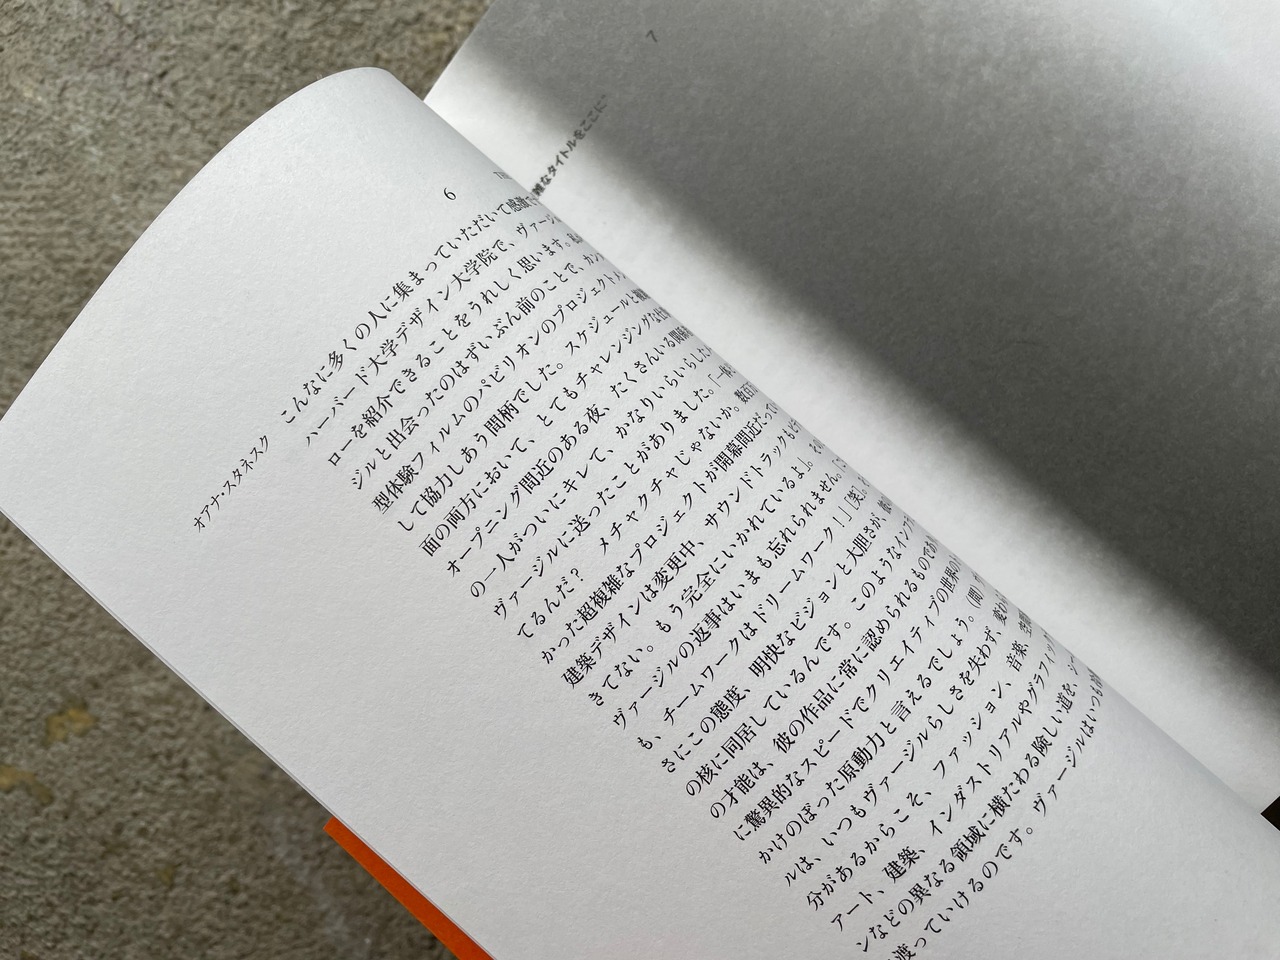 6
7
雑なタイトルをここに"
オアナ・スタネスク
こんなに多くの人に集まっていただいて感激で
ハーバード大学デザイン大学院で、ヴァージ
ローを紹介できることをうれしく思います。
ジルと出会ったのはずいぶん前のことで、カン
型体験フィルムのパビリオンのプロジェクト
して協力しあう間柄でした。スケジュールと
面の両方において、とてもチャレンジングな
オープニング間近のある夜、たくさんいる関係
の一人がついにキレて、かなりいらいらした
ヴァージルに送ったことがありました。「一体
てるんだ? メチャクチャじゃないか。数百万
かった超複雑なプロジェクトが開幕間近だって
建築デザインは変更中、サウンドトラックも
きてない。もう完全にいかれているよ」。
ヴァージルの返事はいまも忘れられません。
も、チームワークはドリームワーク!」[笑]。
さにこの態度、明快なビジョンと大胆さが、
の核に同居しているんです。このようなインフ
の才能は、彼の作品に常に認められるものであ
に驚異的なスピードでクリエイティブの世界の
かけのぼった原動力と言えるでしょう。(間)
ルは、いつもヴァージルらしさを失わず、変わら
分があるからこそ、ファッション、音楽、空間
アート、建築、インダストリアルやグラフィック
ンなどの異なる領域に横たわる険しい道を、
渡っていけるのです。ヴァージルはいつも